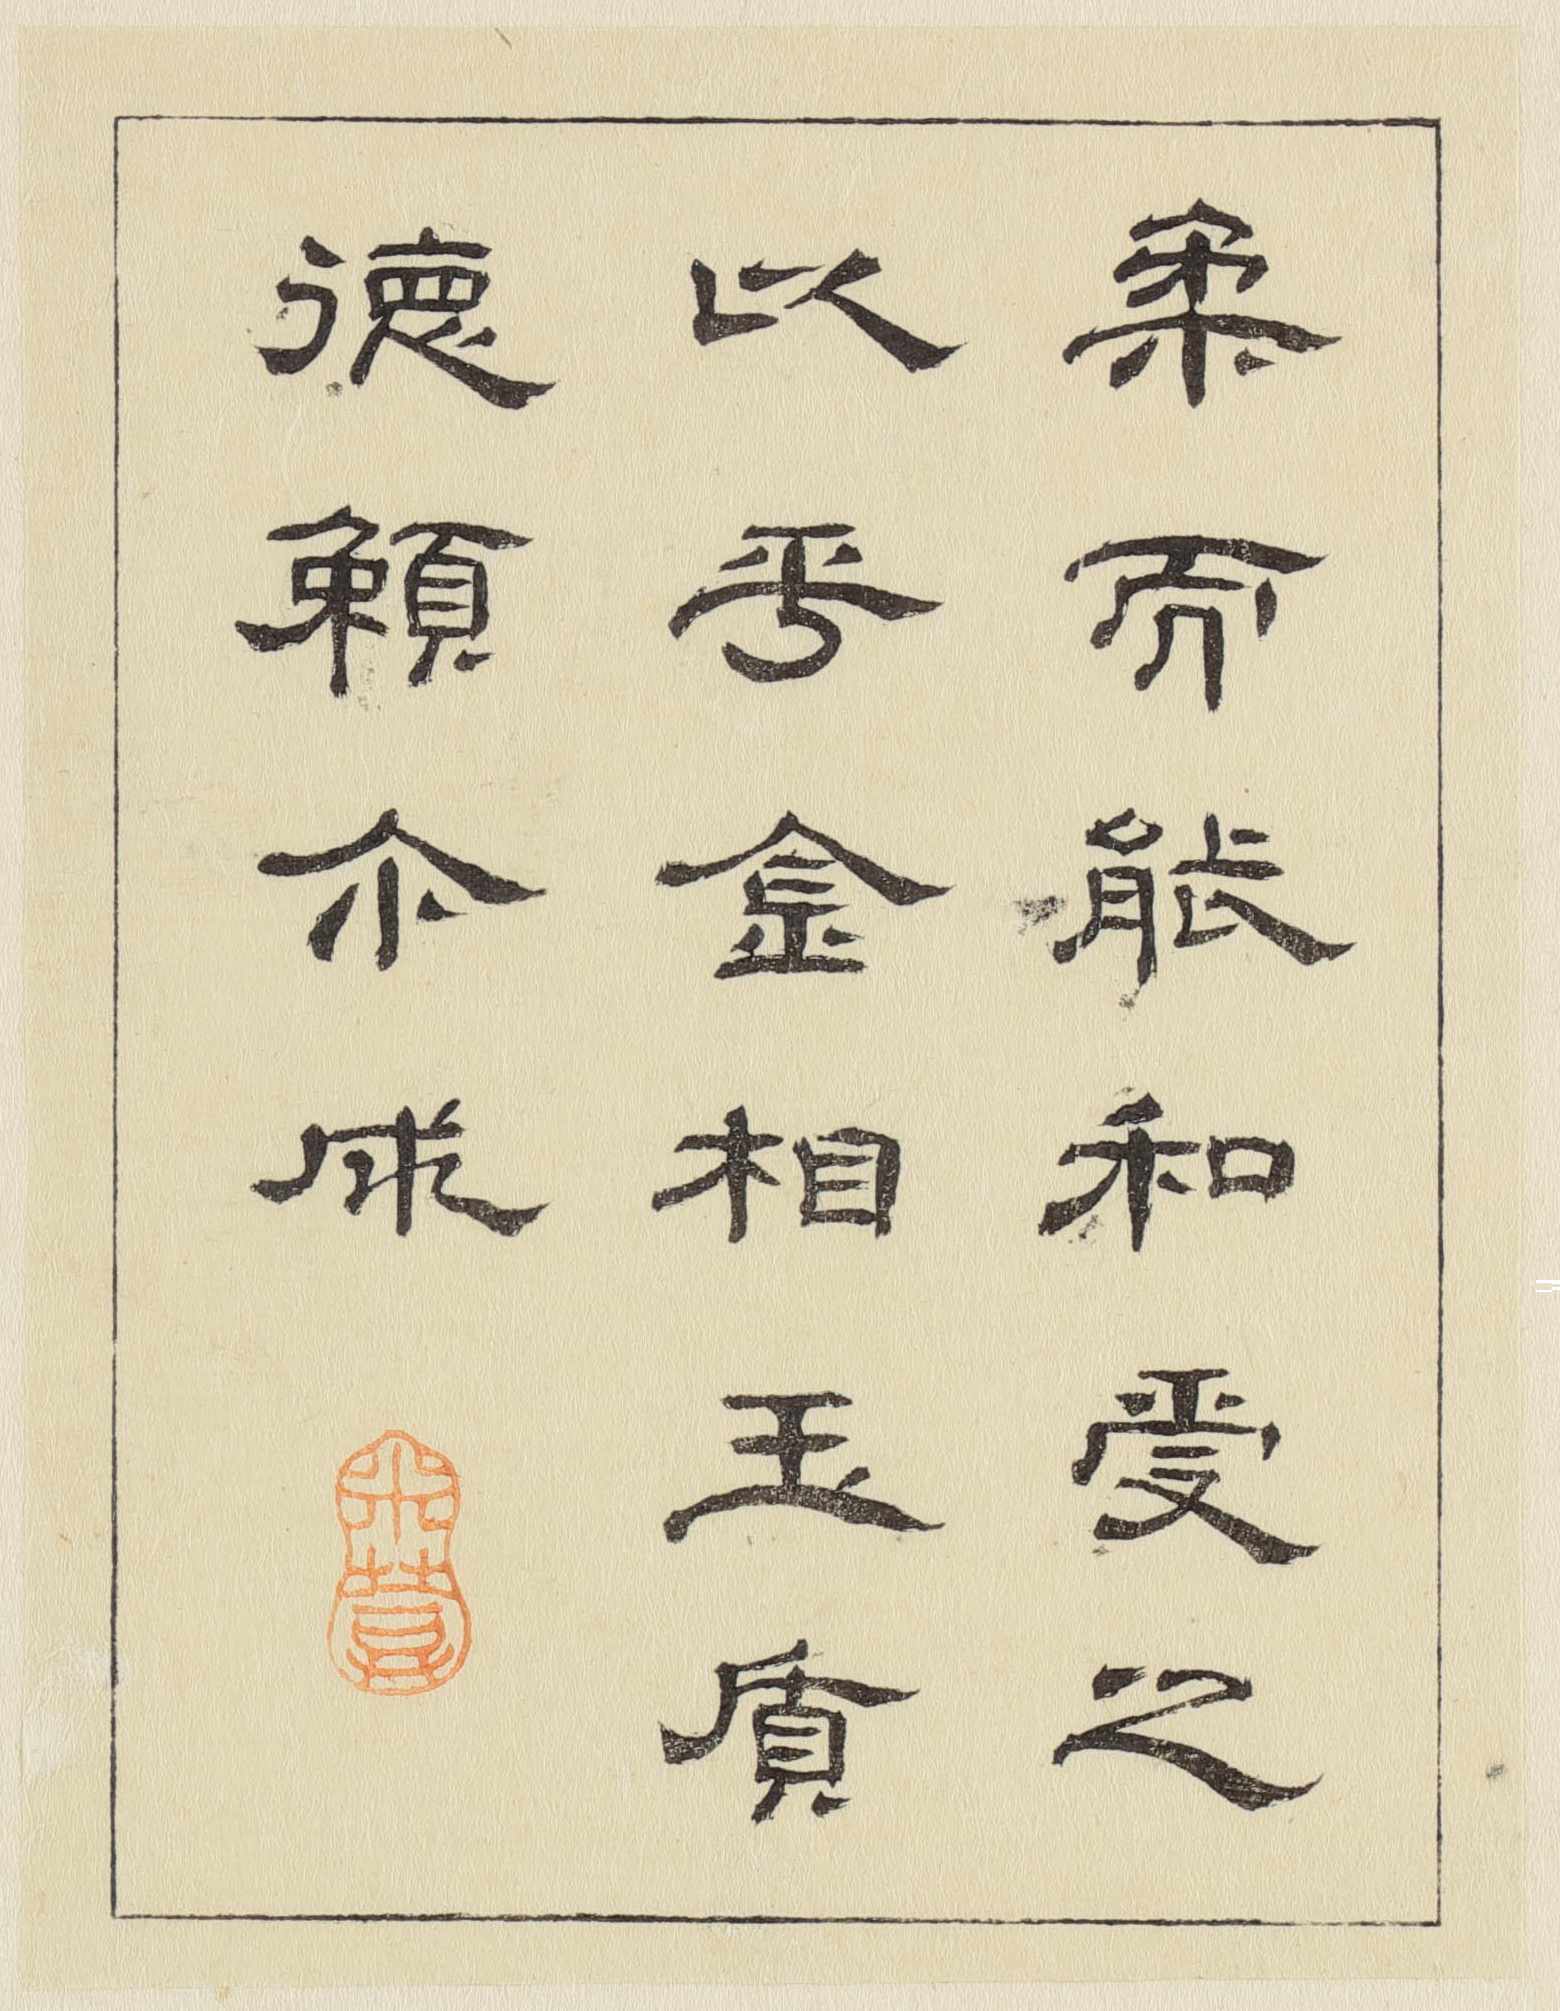 柔而能和受之
以乎金相玉質
德頼尒成